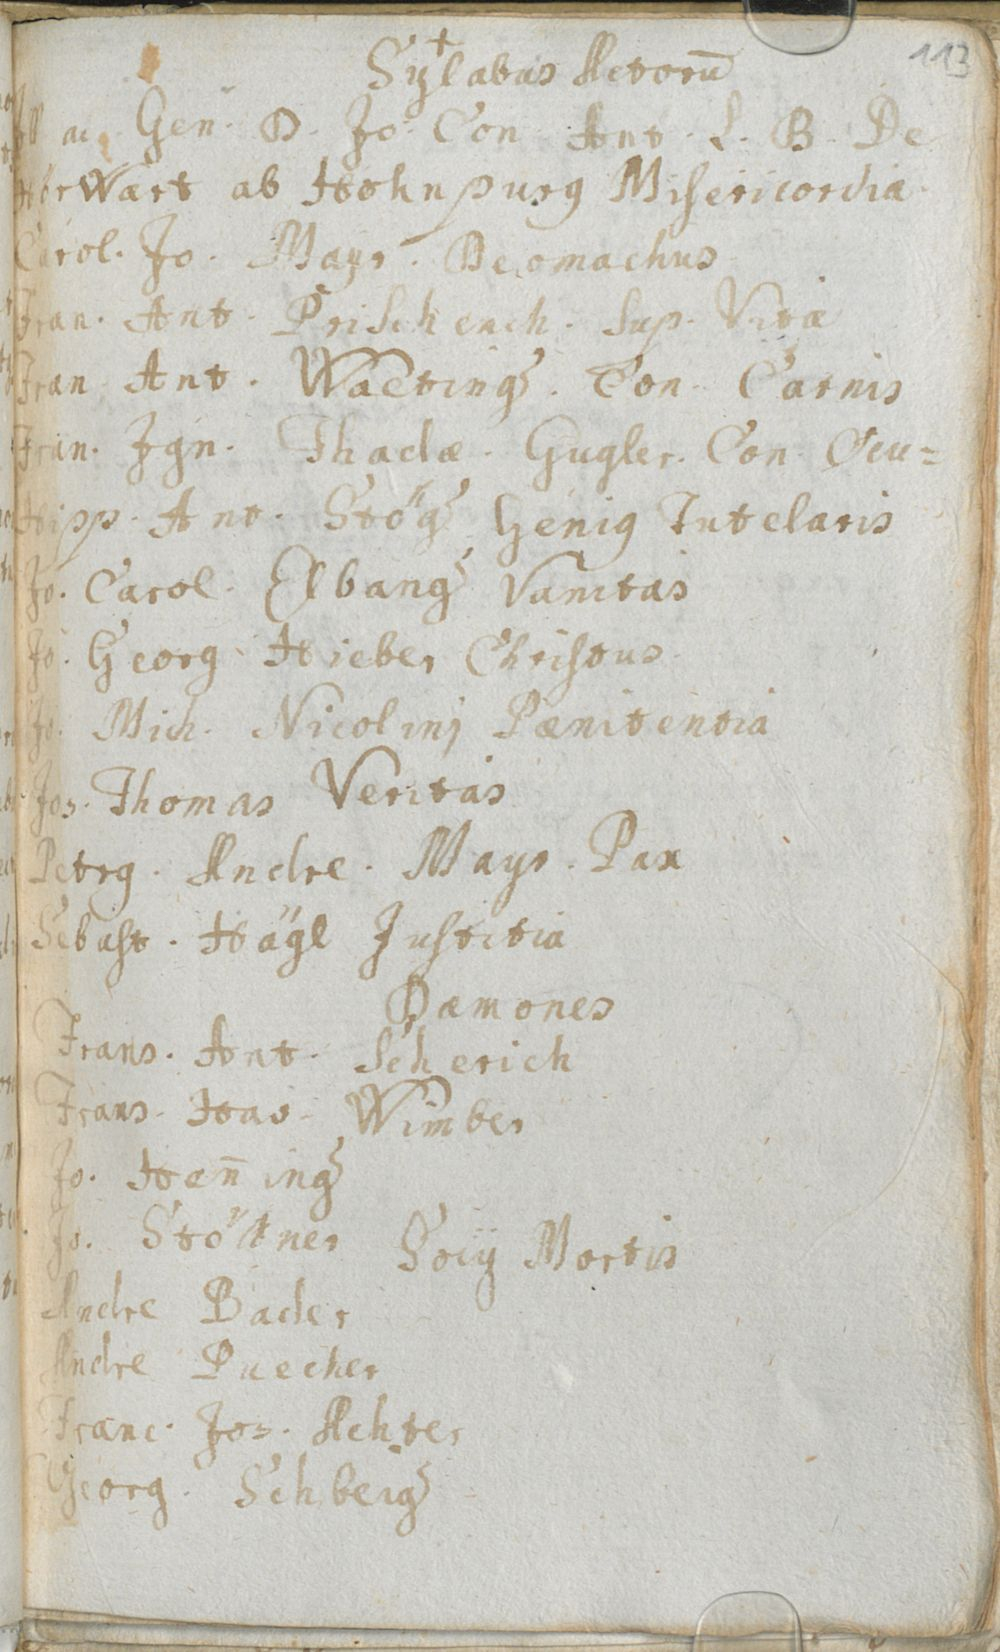 113
Sylabus Actorū
Ill ac Gen. D. Jo. Con. Ant. L. B. De
HörWart ab Hohnpurg Misericordia
Carol. Jo. Mayr. Deomachus
Fran. Ant. Prischench. Sup. Vitæ
Fran Ant. Waeting. Con. Carnis
Fran. Ign. Thadæ. Gugler. Con. Ocu=
Hipp. Ant. Stög Genig Tutelaris
Jo. Carol. Elbang Vanitas
Jo. Georg Hieber Christus
Jo. Mich. Nicolinj Pænitentia
Jos. Thomas Veritas
Petrg. Andre. Mayr. Pax
Sebast. Hägl Justitia
Dæmones
Frans. Ant. Scherich
Frans. Wimber
Jo. Hen̄ing
Jo. Stöttner
Socÿ Mortis
Andre Bader
Andre Puecher
Franc. Jos. Achter
Georg. Schberg